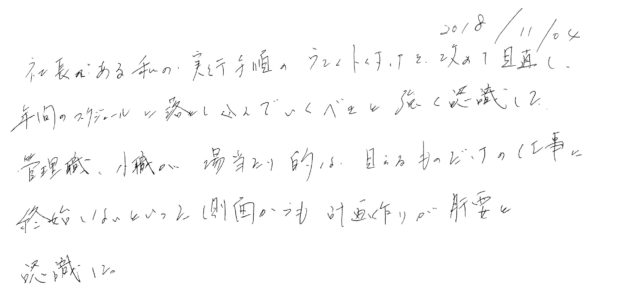 2018/11/04
社長がある私の実行手順の を、改めて見直し、
年間のスケジュールに落とし込んでいくべきと強く認識した
管理職、小職が場当たり的な、見えるものだけの仕事に
終始しないといった側面からも計画作りが肝要と
認識した。